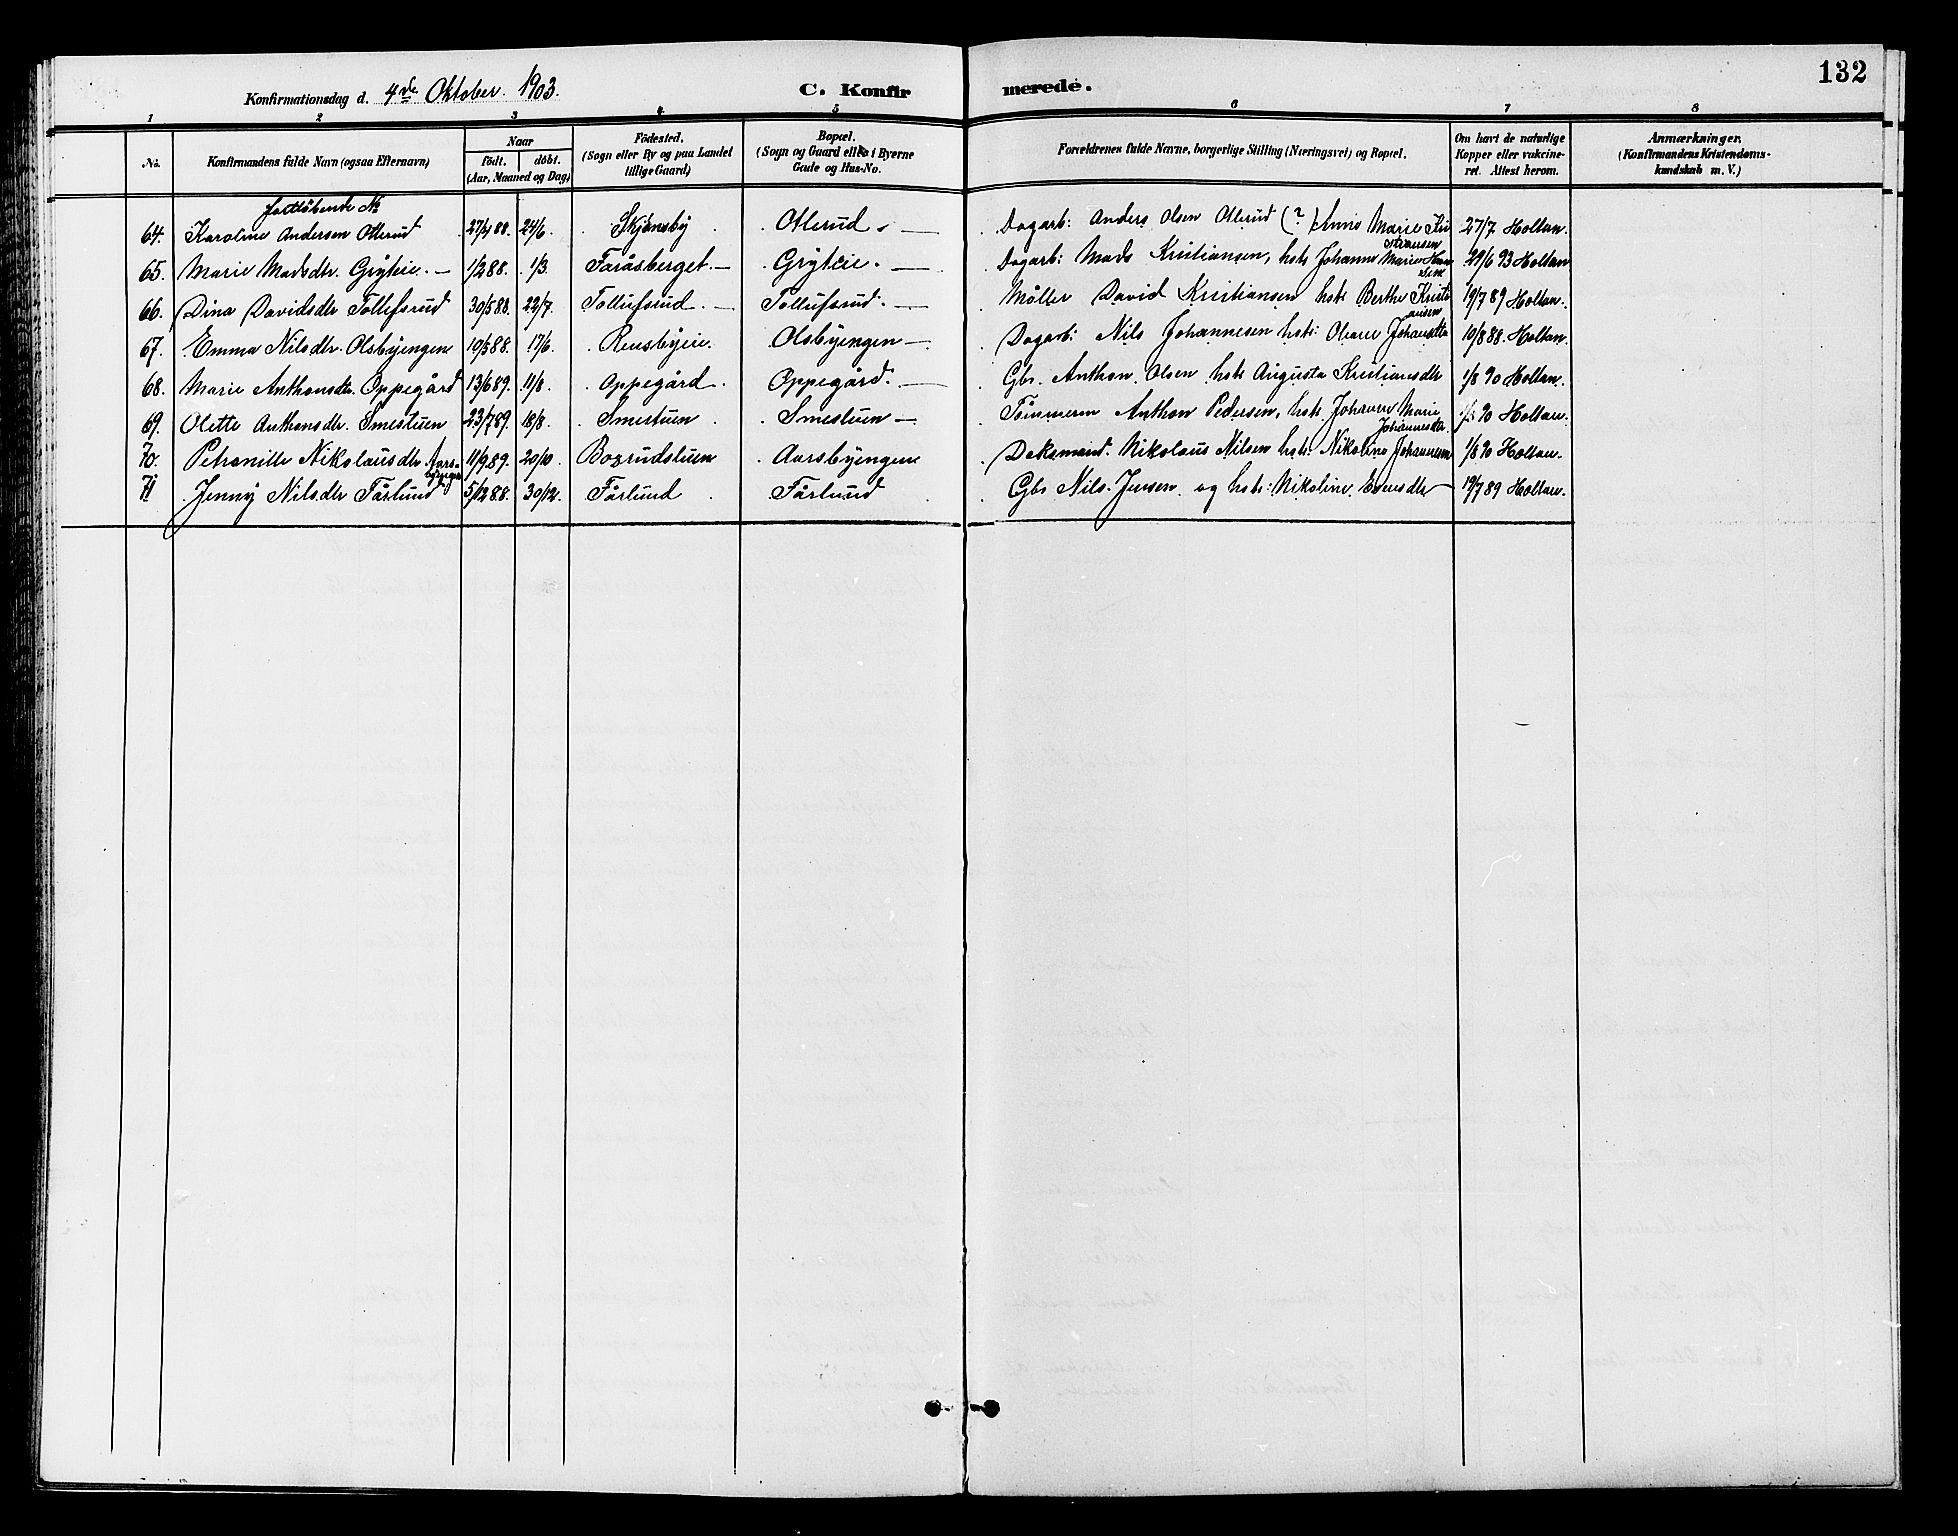 132
Konfirmationsdag d. 4de Oktober. 1903. C. Konfirmerede.
1 2 3 4 5 6 7 8
No. Konfirmandens fulde Navn (ogsaa Efternavn) Naar födt. döbt. (Aar, Maaned og Dag) Födested. (Sogn eller By og paa Landet tillige Gaard) Bopæl. (Sogn og Gaard eller i Byerne Gade og Hus-No. Forældrenes fulde Navne, borgerlige Stilling (Næringsvei) og Bopæl. Om havt de naturlige Kopper eller vakcineret. Attest herom. Anmærkninger. (Konfirmandens Kristendomskundskab m. V.)
fortløbende No
64. Karoline Andersen Ollerud 27/4 88. 24/6. Skjønsby Ollerud - Dagarb: Anders Olsen Ollerud (?) Anne Marie Kristiansen 27/7 Holtan.
65. Marie Madsdtr. Grÿteie. - 1/2 88. 1/3. Faråsberget. - Grÿteie. - Dagarb: Mads Kristiansen, hstr Johanne Marie Hansen 29/6 93 Holtan
66. Dina Davidsdtr Tollefsrud 30/5 88. 22/7. Tollufsrud. - Tollufsrud. - Møller David Kristiansen hstr Berthe Kristiansen 19/7 89 Holtan.
67. Emma Nilsdtr. Olsbyengene 10/5 88. 17/6. Rensbyeie. Olsbyengen - Dagarb: Nils Johannesen hstr: Oleane 10/8 88. Holtan.
68. Marie Anthonsdtr. Oppegård 13/6 89. 11/8. Oppegård. Oppegård. - Gbr. Anthon Olsen hstr Augusta Kristiansdtr 1/8 90 Holtan.
69. Olette Anthonsdtr. Smestuen 23/7 89. 18/8. Smestuen Smestuen - Tømmerm Anthon Pedersen, hstr Johanne Marie Johannesdtr. 1/8 90 Holtan.
70. Petronille Nikolausdtr 11/9 89. 20/10. Bozrudstuen Aarsbyengene Nikolaus Nilsen hstr: Nikoline Johannesen 1/8 90 Holtan.
71 Jenny Nilsdtr Fårlund 5/12 88. 30/12. Fårlund Fårlund Gbr Nils Jensen og hstr: Nikoline Evensdtr - 19/7 89 Holtan.